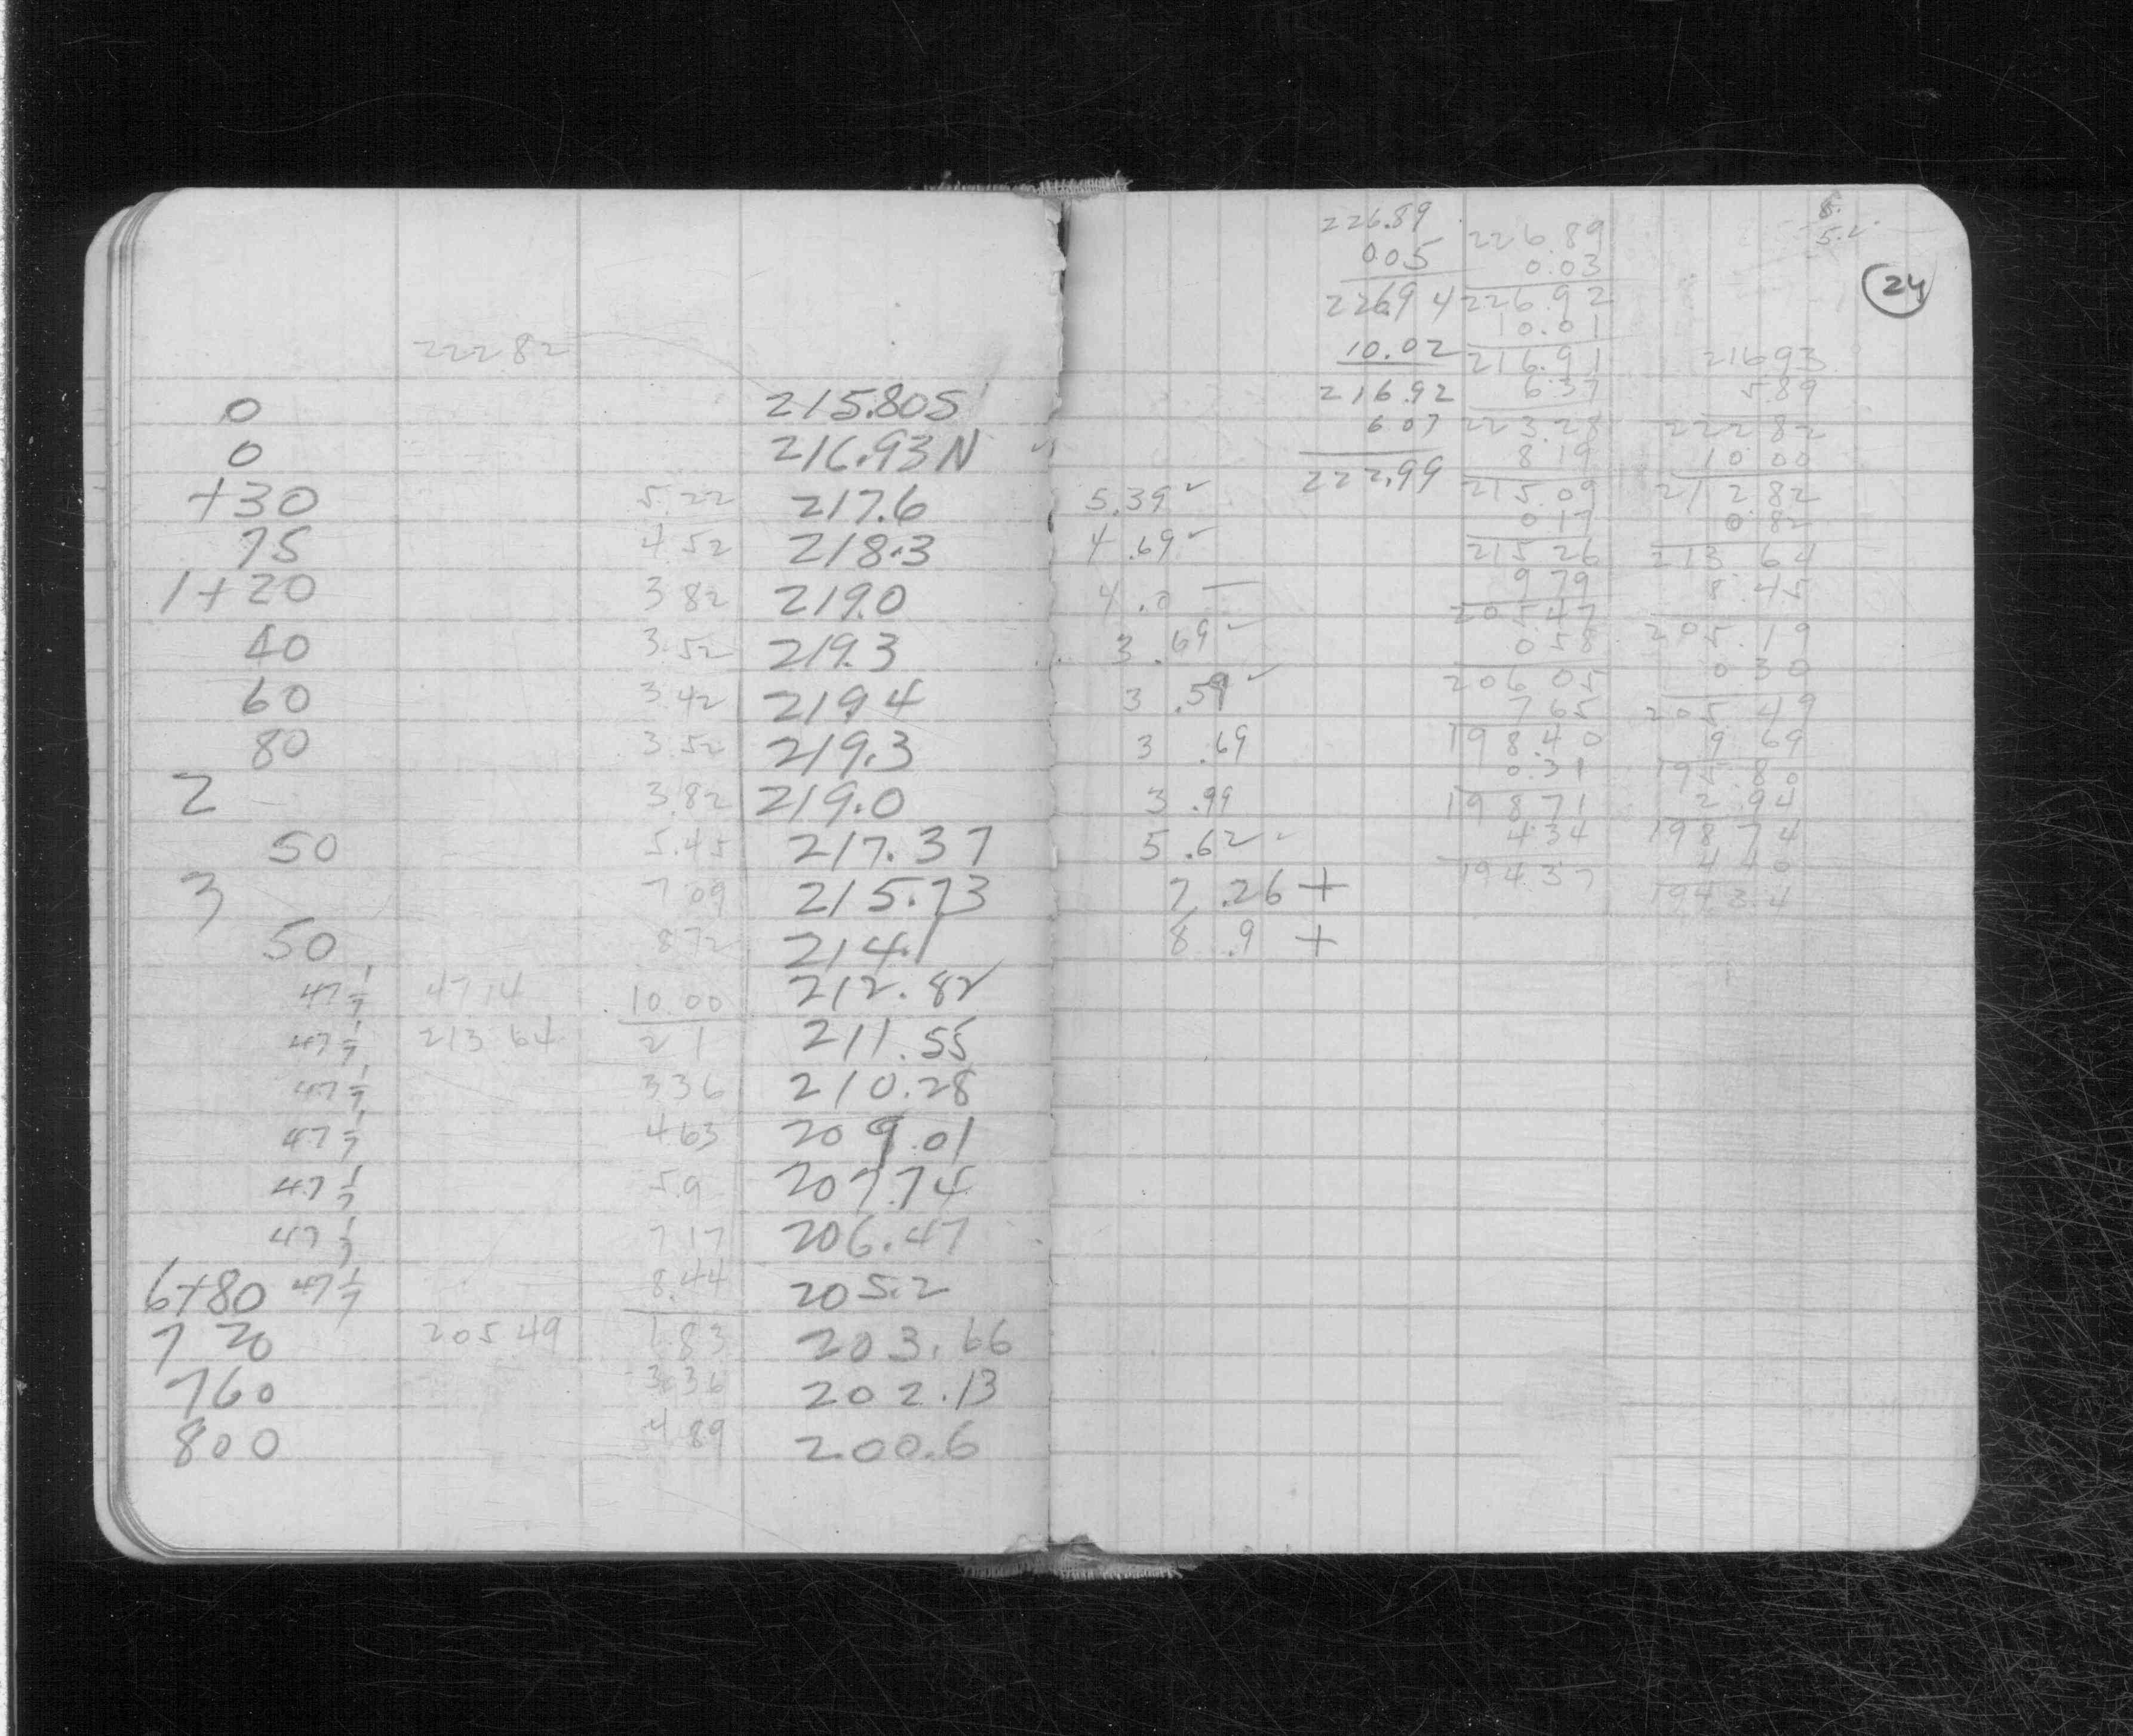 222 82
0 215.805
0 216.93N
+30 5.22 217.6
75 4.52 218.3
1+20 3.82 219.0
40 3.52 219.3
60 3.42 219.4
80 3.52 219.3
2 3.82 219.0
50 5.45 217.37
3 7.09 215.73
50 8.72 214.1
47 1/7 47 14 10.00 212.82
47 1/7 213 64 2 1 211.55
47 1/7 3 36 210.28
47 1/7 4.63 209.01
47 1/7 5.9 207.74
47 1/7 7 17 206.47
6+80 47 1/7 8.44 205.2
7 20 205 49 1.83 203.66
760 3.36 202.13
800 4.89 200.6
24
5.39 ✓
4.69 ✓
4.0 —
3.69 ✓
3.59 ✓
3.69
3.99
5.62 ✓
7.26 +
8.9 +
226.89
0.05
226.94
10.02
216.92
6 07
222.99
226 89
0.03
226.92
10.01
216.91
6.37
223.28
8 19
215.09
0 17
215 26
9 79
205.47
0 58
206 05
7 65
198.40
0.31
198 71
4.34
194.37
216 93
5.89
222 82
10 00
212 82
0.82
213 64
8.45
205.19
0 30
205 49
9 69
195.80
2 94
198 74
4 40
194 3.4